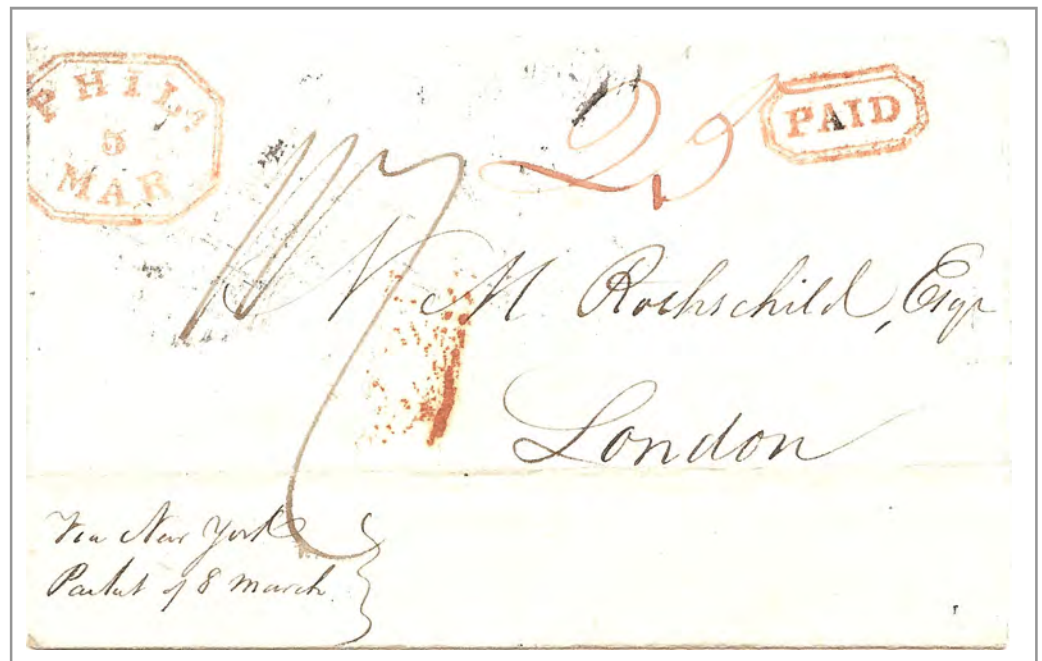 PHILA
5
MAR
25
PAID
N M Rothschild, Esqr
London
Via New York
Packet of 8 March